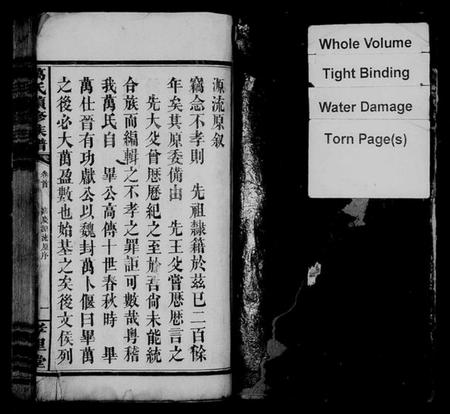 源流原叙
竊念不孝則 先祖隸籍於兹已二百餘
年矣其原委備由 先王父嘗歷歷言之
先大父曾歷歷紀之至於吾尚未能統
合族而編輯之不孝之罪詎可數哉粤稽
我萬氏自 畢公高傳十世春秋時 畢
萬仕晉有功獻公以魏封萬卜偃曰畢萬
之後必大萬盈數也始基之矣後文侯列
萬氏續修族譜
卷首
源流原序
一
Whole Volume
Tight Binding
Water Damage
Torn Page(s)